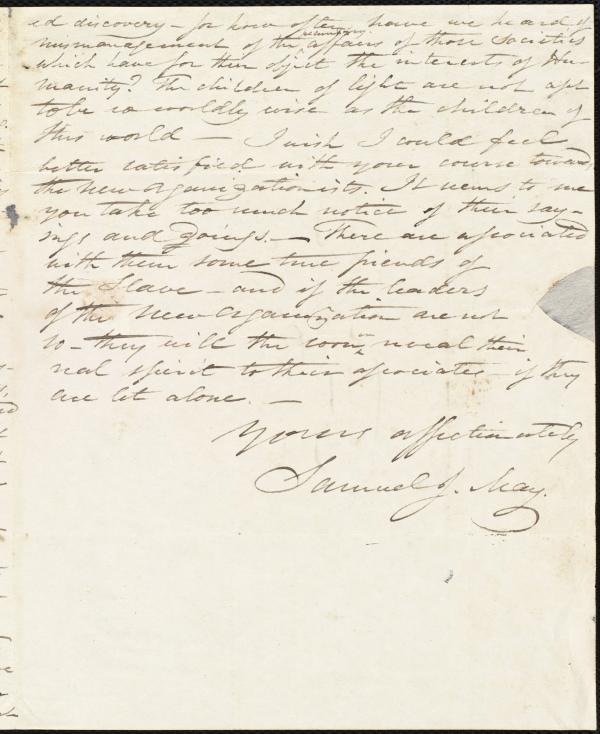 ed discovery – for how often have we heard of
mismanagement of the pecuniary affairs of those Societies
which have for their object the interests of Hu-
manity? The children of light are not apt
to be so worldly wise as the children of
this world — I wish I could feel
better satisfied with your course towards
the New Organizationists. It seems to me
you take too much notice of their say-
ings and doings. — There are associated
with them some true friends of
the Slave – and if the leaders
of the New Organization are not
so – they will the sooner reveal their
real spirit to their associates – if they
are let alone. —
Yours affectionately
Samuel J. May.